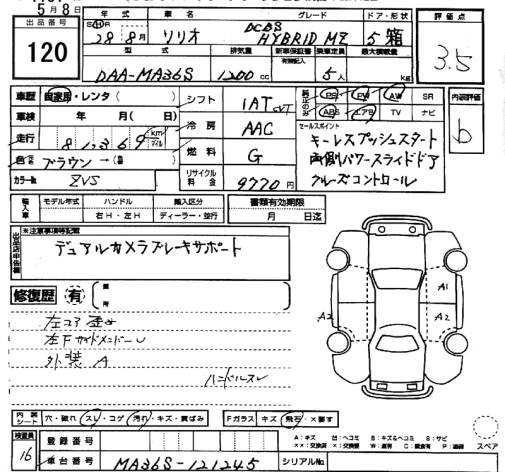 5月8日
出品番号 年式 車名 グレード ドア・形状 評価点
120
S/H 28年 8月 ソリオ DCBS HYBRID MZ 5 箱
3.5
型式 排気量 新車保証書 乗車定員 最大積載量
有無記入
DAA-MA36S 1200 cc 5人 kg
車歴 自家用・レンタ( ) シフト 1AT CVT PS PW AW SR 内装評価
車検 年 月( 日) 冷房 AAC ABS エアB TV ナビ b
走行 8,1369 km マイル 燃料 G セールスポイント
色 ブラウン→( ) リサイクル料金 9770円
カラーNo ZVS
キーレスプッシュスタート
両側パワースライドドア
クルーズコントロール
輸入車 モデル年式 ハンドル 輸入区分 書類有効期限
右H・左H ディーラー・並行 月 日迄
※注意事項等記載
デュアルカメラブレーキサポート
修復歴 有 箇所
左コア歪み
左Fサイドメンバーu
外装 A
ハンドルスレ
A1
A2 A2
内装シート 穴・破れ スレ・コゲ 汚れ・キズ・黄ばみ Fガラス キズ 飛石・×要す
検査員 16
登録番号
車台番号 MA36S-121245 シリアルNo.
A:キズ U:ヘコミ B:キズ&ヘコミ S:サビ
××:交換済 ×:交換要 スペア